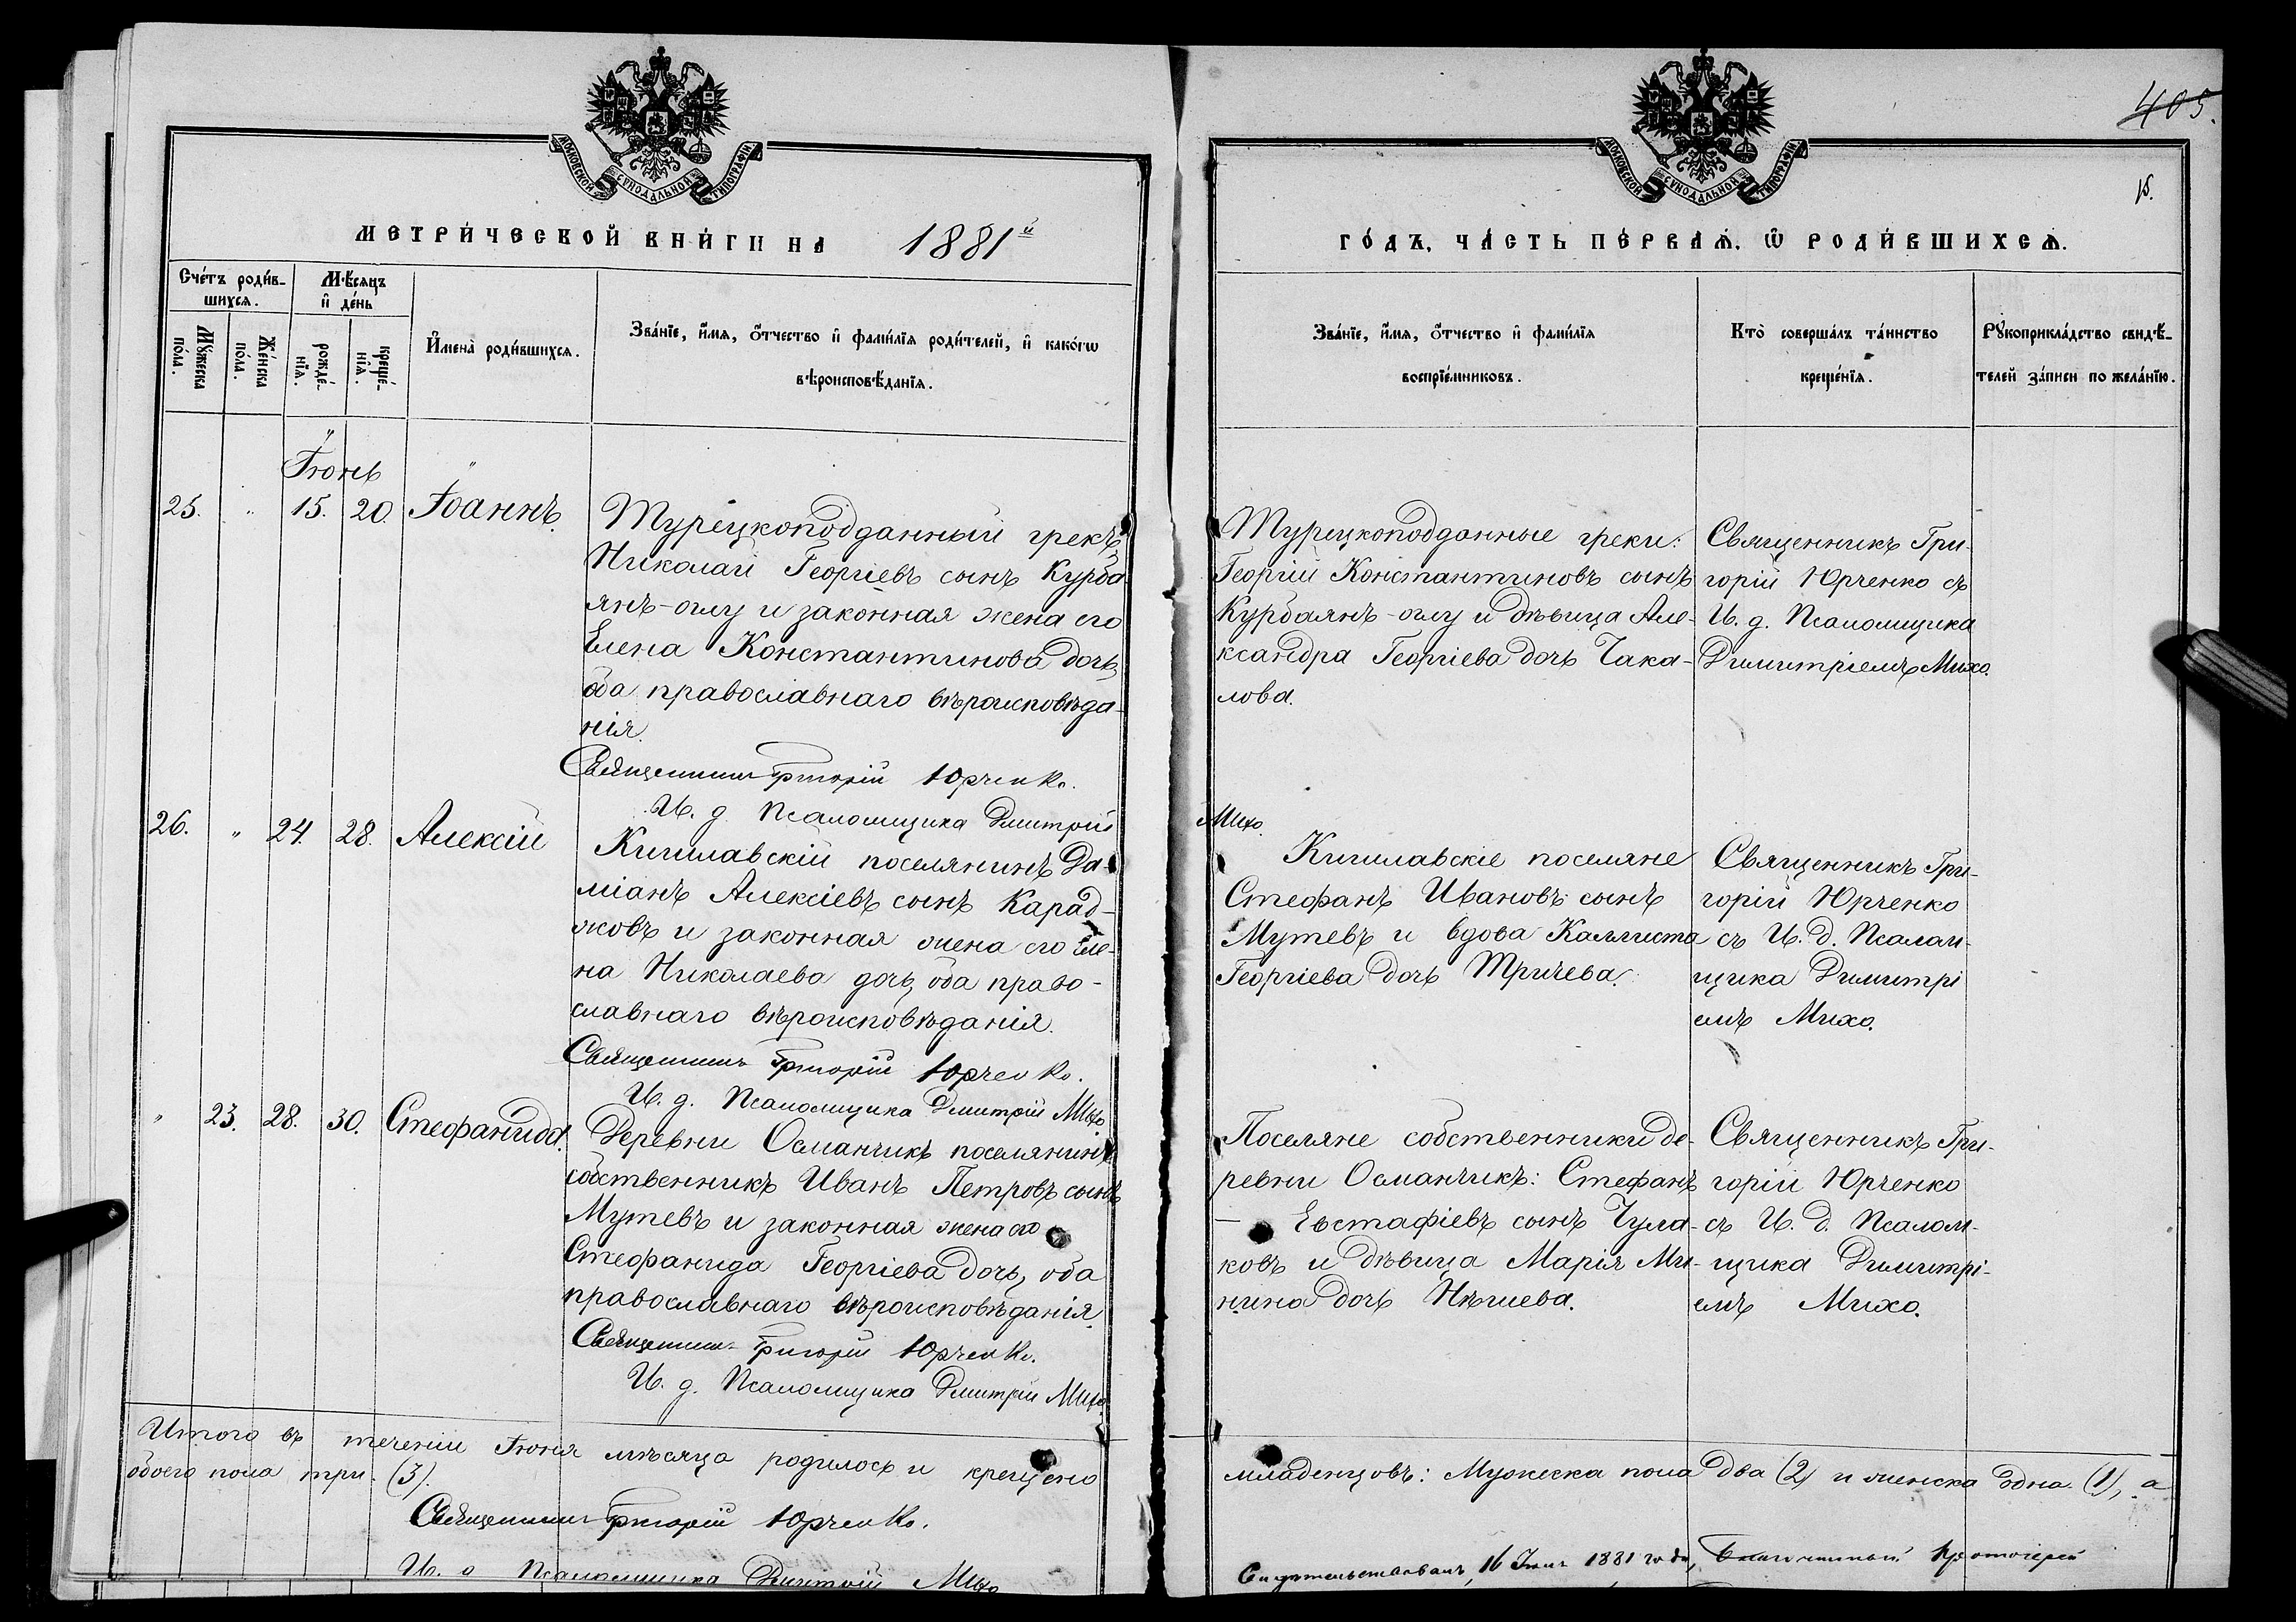 МОСКОВСКОЙ СѴНОДАЛЬНОЙ ТИПОГРАФІИ
МЕТРИЧЕСКОЙ КНИГИ НА 1881й
Счетъ родив-
шихся.
Мѣсяцъ
и день
Мужеска
пола.
Женска
пола.
рожде-
нія.
креще-
нія.
Имена родившихся.
Званіе, имя, отчество и фамилія родителей, и какогѡ
вѣроисповѣданія.
Іюнь
25. " 15. 20. Іоаннъ.
Турецкоподданный грекъ
Николай Георгіевъ сынъ Курба
янъ-оглу и законная жена его
Елена Константинова дочь,
оба православнаго вѣроисповѣда-
нія.
Священникъ Григорій Юрченко.
И. д. Псаломщика Димитрій
Михо.
26. " 24. 28. Алексій
Кигилавскій поселянинъ Да-
міанъ Алексіевъ сынъ Карад-
жовъ и законная жена его Еле-
на Николаева дочь, оба право-
славнаго вѣроисповѣданія.
Священникъ Григорій Юрченко.
И. д. Псаломщика Димитрій Михо
" 23. 28. 30. Стефанида.
Деревни Османчикъ поселянинъ
собственникъ Иванъ Петровъ сынъ
Мутевъ и законная жена его
Стефанида Георгіева дочь, оба
православнаго вѣроисповѣданія.
Священникъ Григорій Юрченко.
И. д. Псаломщика Димитрій Михо.
Итого въ теченіи Іюня мѣсяца родилось и крещено
обоего пола три. (3).
Священникъ Григорій Юрченко.
И. д. Псаломщика Димитрій Михо
405.
МОСКОВСКОЙ СѴНОДАЛЬНОЙ ТИПОГРАФІИ
ГОДЪ, ЧАСТЬ ПЕРВАЯ, Ѡ РОДИВШИХСЯ.
Званіе, имя, отчество и фамилія
воспріемниковъ.
Кто совершалъ таинство
крещенія.
Рукоприкладство свидѣ-
телей записи по желанію.
Турецкоподданные греки:
Георгій Константиновъ сынъ
Курбаянъ-оглу и дѣвица Але-
ксандра Георгіева дочь Чака-
лова.
Священникъ Гри-
горій Юрченко съ
И. д. Псаломщика
Димитріемъ Михо.
Кигилавскіе поселяне
Стефанъ Ивановъ сынъ
Мутевъ и вдова Каллиста
Георгіева дочь Тричева.
Священникъ Гри-
горій Юрченко
съ И. д. Псалом-
щика Димитрі
емъ Михо.
Поселяне собственники де-
ревни Османчикъ: Стефанъ
— Евстафіевъ сынъ Чула-
ковъ и дѣвица Марія Ми-
нина дочь Нѣгиева.
Священникъ Гри-
горій Юрченко
съ И. д. Псалом-
щика Димитрі-
емъ Михо.
младенцовъ: Мужеска пола два (2) и женска одна. (1), а
Свидѣтельствовалъ, 16 Іюля 1881 года, Благочинный Протоіерей